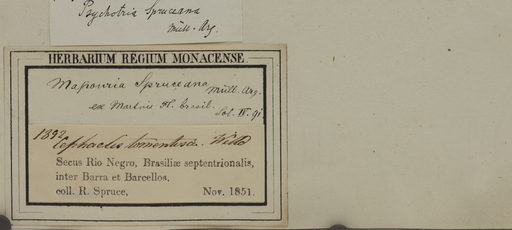 Psychotria Spruceana
müll. Arg.
HERBARIUM REGIUM MONACENSE.
Mapouria Spruceana müll. Arg.
ex Martii Fl. brasil.
1892 Cephaelis tomentosa. Willd
Secus Rio Negro, Brasiliæ septentrionalis,
inter Barra et Barcellos,
coll. R. Spruce, Nov. 1851.